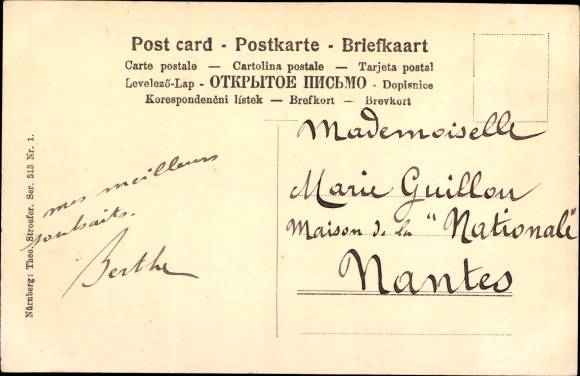 Post card - Postkarte - Briefkaart
Carte postale — Cartolina postale — Tarjeta postal
Levelező-Lap - ОТКРЫТОЕ ПИСЬМО - Dopisnice
Korespondenční lístek — Brefkort — Brevkort
Mademoiselle
Marie Guillou
Maison de la "Nationale"
Nantes
mes meilleurs
souhaits.
Berthe
Nürnberg: Theo. Stroefer. Ser. 513 Nr. 1.